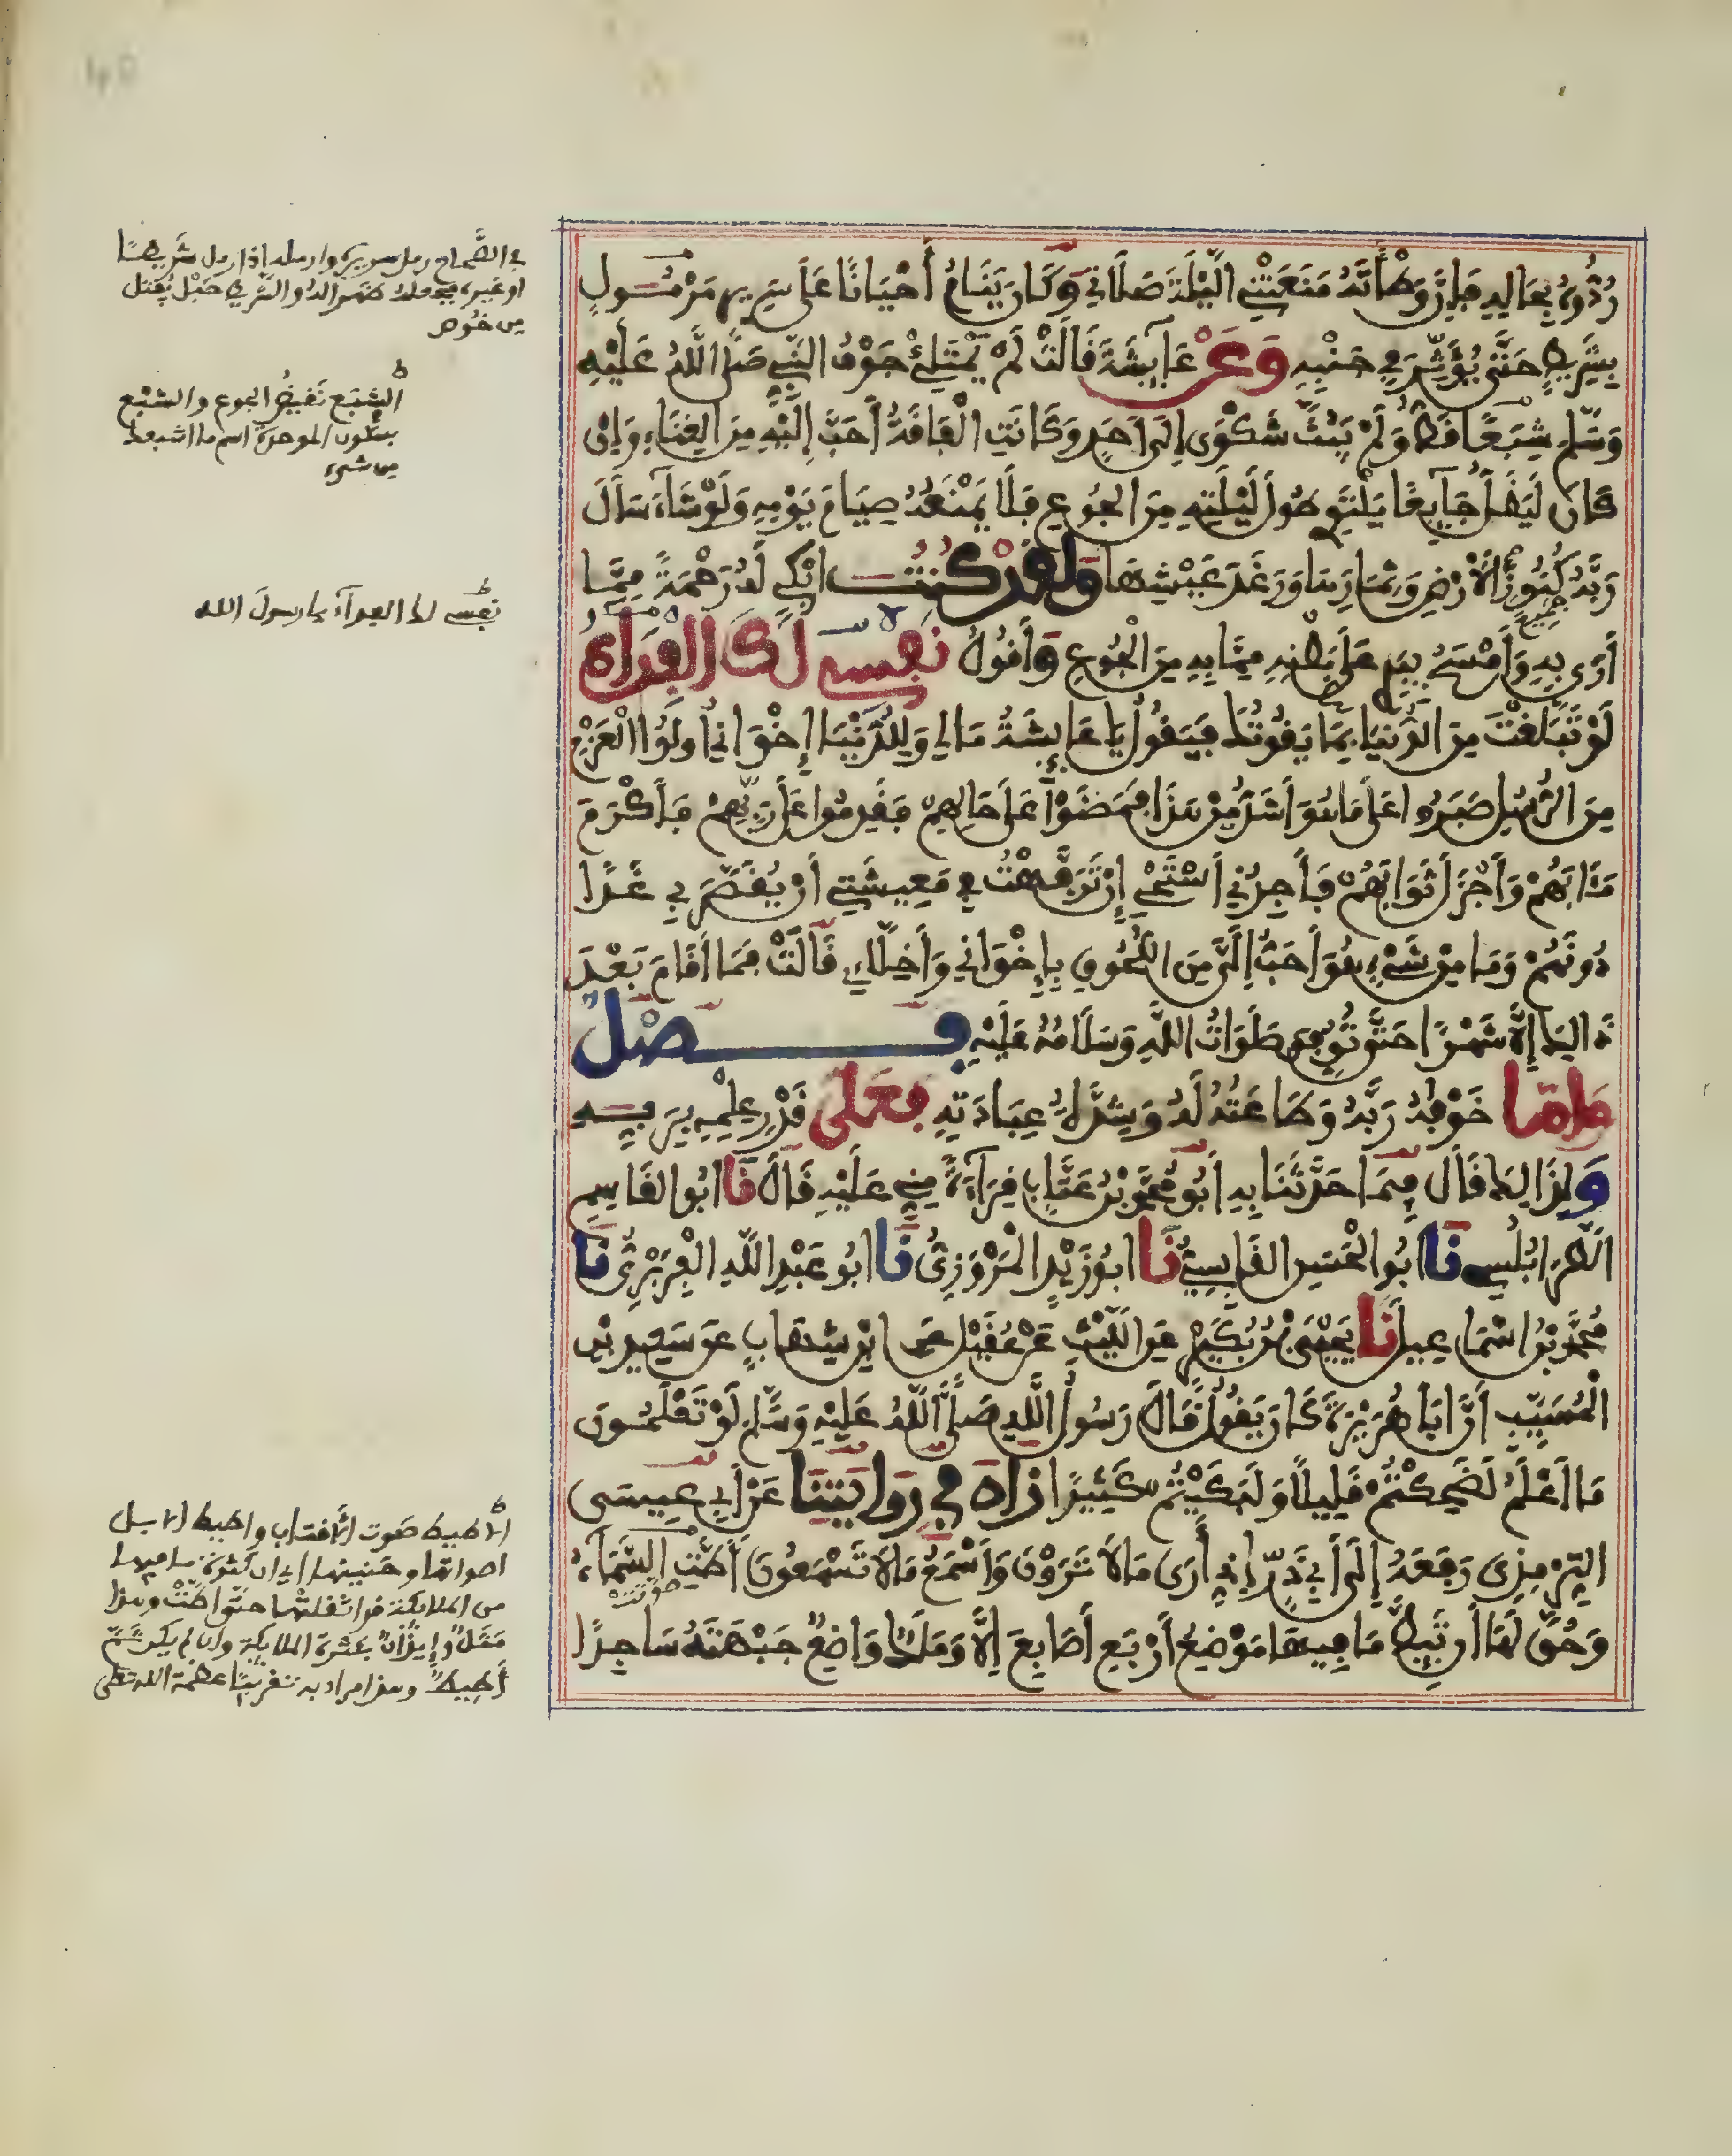 رُدُّوهُ بِحَالِهِ فَإِنَّ وَطْأَتَهُ مَنَعَتْنِي اللَّيْلَةَ صَلَاتِي وَكَانَ يَنَامُ أَحْيَانًا عَلَى سَرِيرٍ مَرْمُولٍ
بِشَرِيطٍ حَتَّى يُؤَثِّرَ فِي جَنْبِهِ وَعَنْ عَائِشَةَ قَالَتْ لَمْ يَمْتَلِئْ جَوْفُ النَّبِيِّ صَلَّى اللَّهُ عَلَيْهِ
وَسَلَّمَ شِبَعًا قَطُّ وَلَمْ يَبُثَّ شَكْوَى إِلَى أَحَدٍ وَكَانَتِ الْفَاقَةُ أَحَبَّ إِلَيْهِ مِنَ الْغِنَاءِ وَإِنْ
كَانَ لَيَظَلُّ جَائِعًا يَلْتَوِي طُولَ لَيْلَتِهِ مِنَ الْجُوعِ فَلَا يَمْنَعُهُ صِيَامَ يَوْمِهِ وَلَوْ شَاءَ سَأَلَ
رَبَّهُ كُنُوزَ الْأَرْضِ وَثِمَارِهَا وَرَغَدَ عَيْشِهَا وَلَقَدْ كُنْتُ أَبْكِي لَهُ رَحْمَةً مِمَّا
جميع
أَرَى بِهِ وَأَمْسَحُ بِيَدِي عَلَى بَطْنِهِ مِمَّا بِهِ مِنَ الْجُوعِ وَأَقُولُ نَفْسِي لَكَ الْفِدَاءُ
لَوْ تَبَلَّغْتَ مِنَ الدُّنْيَا بِمَا يَقُوتُكَ فَيَقُولُ يَا عَائِشَةُ مَا لِي وَلِلدُّنْيَا إِخْوَانِي أُولُوا الْعَزْمِ
مِنَ الرُّسُلِ صَبَرُوا عَلَى مَا هُوَ أَشَدُّ مِنْ هَذَا فَمَضَوْا عَلَى حَالِهِمْ فَقَدِمُوا عَلَى رَبِّهِمْ فَأَكْرَمَ
مَئَابَهُمْ وَأَجْزَلَ ثَوَابَهُمْ فَأَجِدُنِي أَسْتَحْيِي إِنْ تَرَفَّهْتُ فِي مَعِيشَتِي أَنْ يُقَصَّرَ بِي غَدًا
دُونَهُمْ وَمَا مِنْ شَيْءٍ هُوَ أَحَبُّ إِلَيَّ مِنَ اللُّحُوقِ بِإِخْوَانِي وَأَخِلَّائِي قَالَتْ فَمَا أَقَامَ بَعْدَ
ذَالِكَ إِلَّا شَهْرًا حَتَّى تُوُفِّيَ صَلَوَاتُ اللَّهِ وَسَلَامُهُ عَلَيْهِ فَصْلٌ
وَأَمَّا خَوْفُهُ رَبَّهُ وَطَاعَتُهُ لَهُ وَشِدَّةُ عِبَادَتِهِ فَعَلَى قَدْرِ عِلْمِهِ بِرَبِّهِ
وَلِذَالِكَ قَالَ فِيمَا حَدَّثَنَا بِهِ أَبُو مُحَمَّدِ بْنُ عَتَّابٍ قِرَاءَةً مِنِّي عَلَيْهِ قَالَ نَا أَبُو الْقَاسِمِ
الطَّرَابُلُسِي نَا أَبُو الْحَسَنِ الْقَابِسِيُّ نَا أَبُو زَيْدٍ الْمَرْوَزِيُّ نَا أَبُو عَبْدِ اللَّهِ الْفِرَبْرِيُّ نَا
مُحَمَّدُ بْنُ إِسْمَاعِيلَ نَا يَحْيَى بْنُ بُكَيْرٍ عَنِ اللَّيْثِ عَنْ عُقَيْلٍ عَنِ ابْنِ شِهَابٍ عَنْ سَعِيدِ بْنِ
الْمُسَيِّبِ أَنَّ أَبَا هُرَيْرَةَ كَانَ يَقُولُ قَالَ رَسُولُ اللَّهِ صَلَّى اللَّهُ عَلَيْهِ وَسَلَّمَ لَوْ تَعْلَمُونَ
مَا أَعْلَمُ لَضَحِكْتُمْ قَلِيلًا وَلَبَكَيْتُمْ كَثِيرًا زَادَ فِي رِوَايَتِنَا عَنْ أَبِي عِيسَى
التِّرْمِذِي رَفَعَهُ إِلَى أَبِي ذَرٍّ إِنِّي أَرَى مَا لَا تَرَوْنَ وَأَسْمَعُ مَا لَا تَسْمَعُونَ أَطَّتِ السَّمَاءُ
صوتت
وَحُقَّ لَهَا أَنْ تَئِطَّ مَا فِيهَا مَوْضِعُ أَرْبَعِ أَصَابِعَ إِلَّا وَمَلَكٌ وَاضِعٌ جَبْهَتَهُ سَاجِدًا
في الصَّحاح رمل سريره وارمله اذا رمل شَريطًا
او غيره فجعله ظهرا له والشريط حَبْل يُفتل
من خُوص
الشِّبَع نَقيضُ الجوع والشبْع
بسكون الموحدة اسم ما اشبعك
من شيء
نفسي لك الفداء يا رسولَ الله
الاطيط صوت الأقتاب واطيط الابل
اصواتها وحنينها اي ان كثرة ما فيها
من الملائكة قد اثقلتها حتى اطَّتْ وهذا
مَثَلٌ وإيذَانٌ بكثرة الملائكة وان لم يكن ثَمَّ
أَطِيطٌ وهذا مراد به تقريبا عظمة الله تعلى